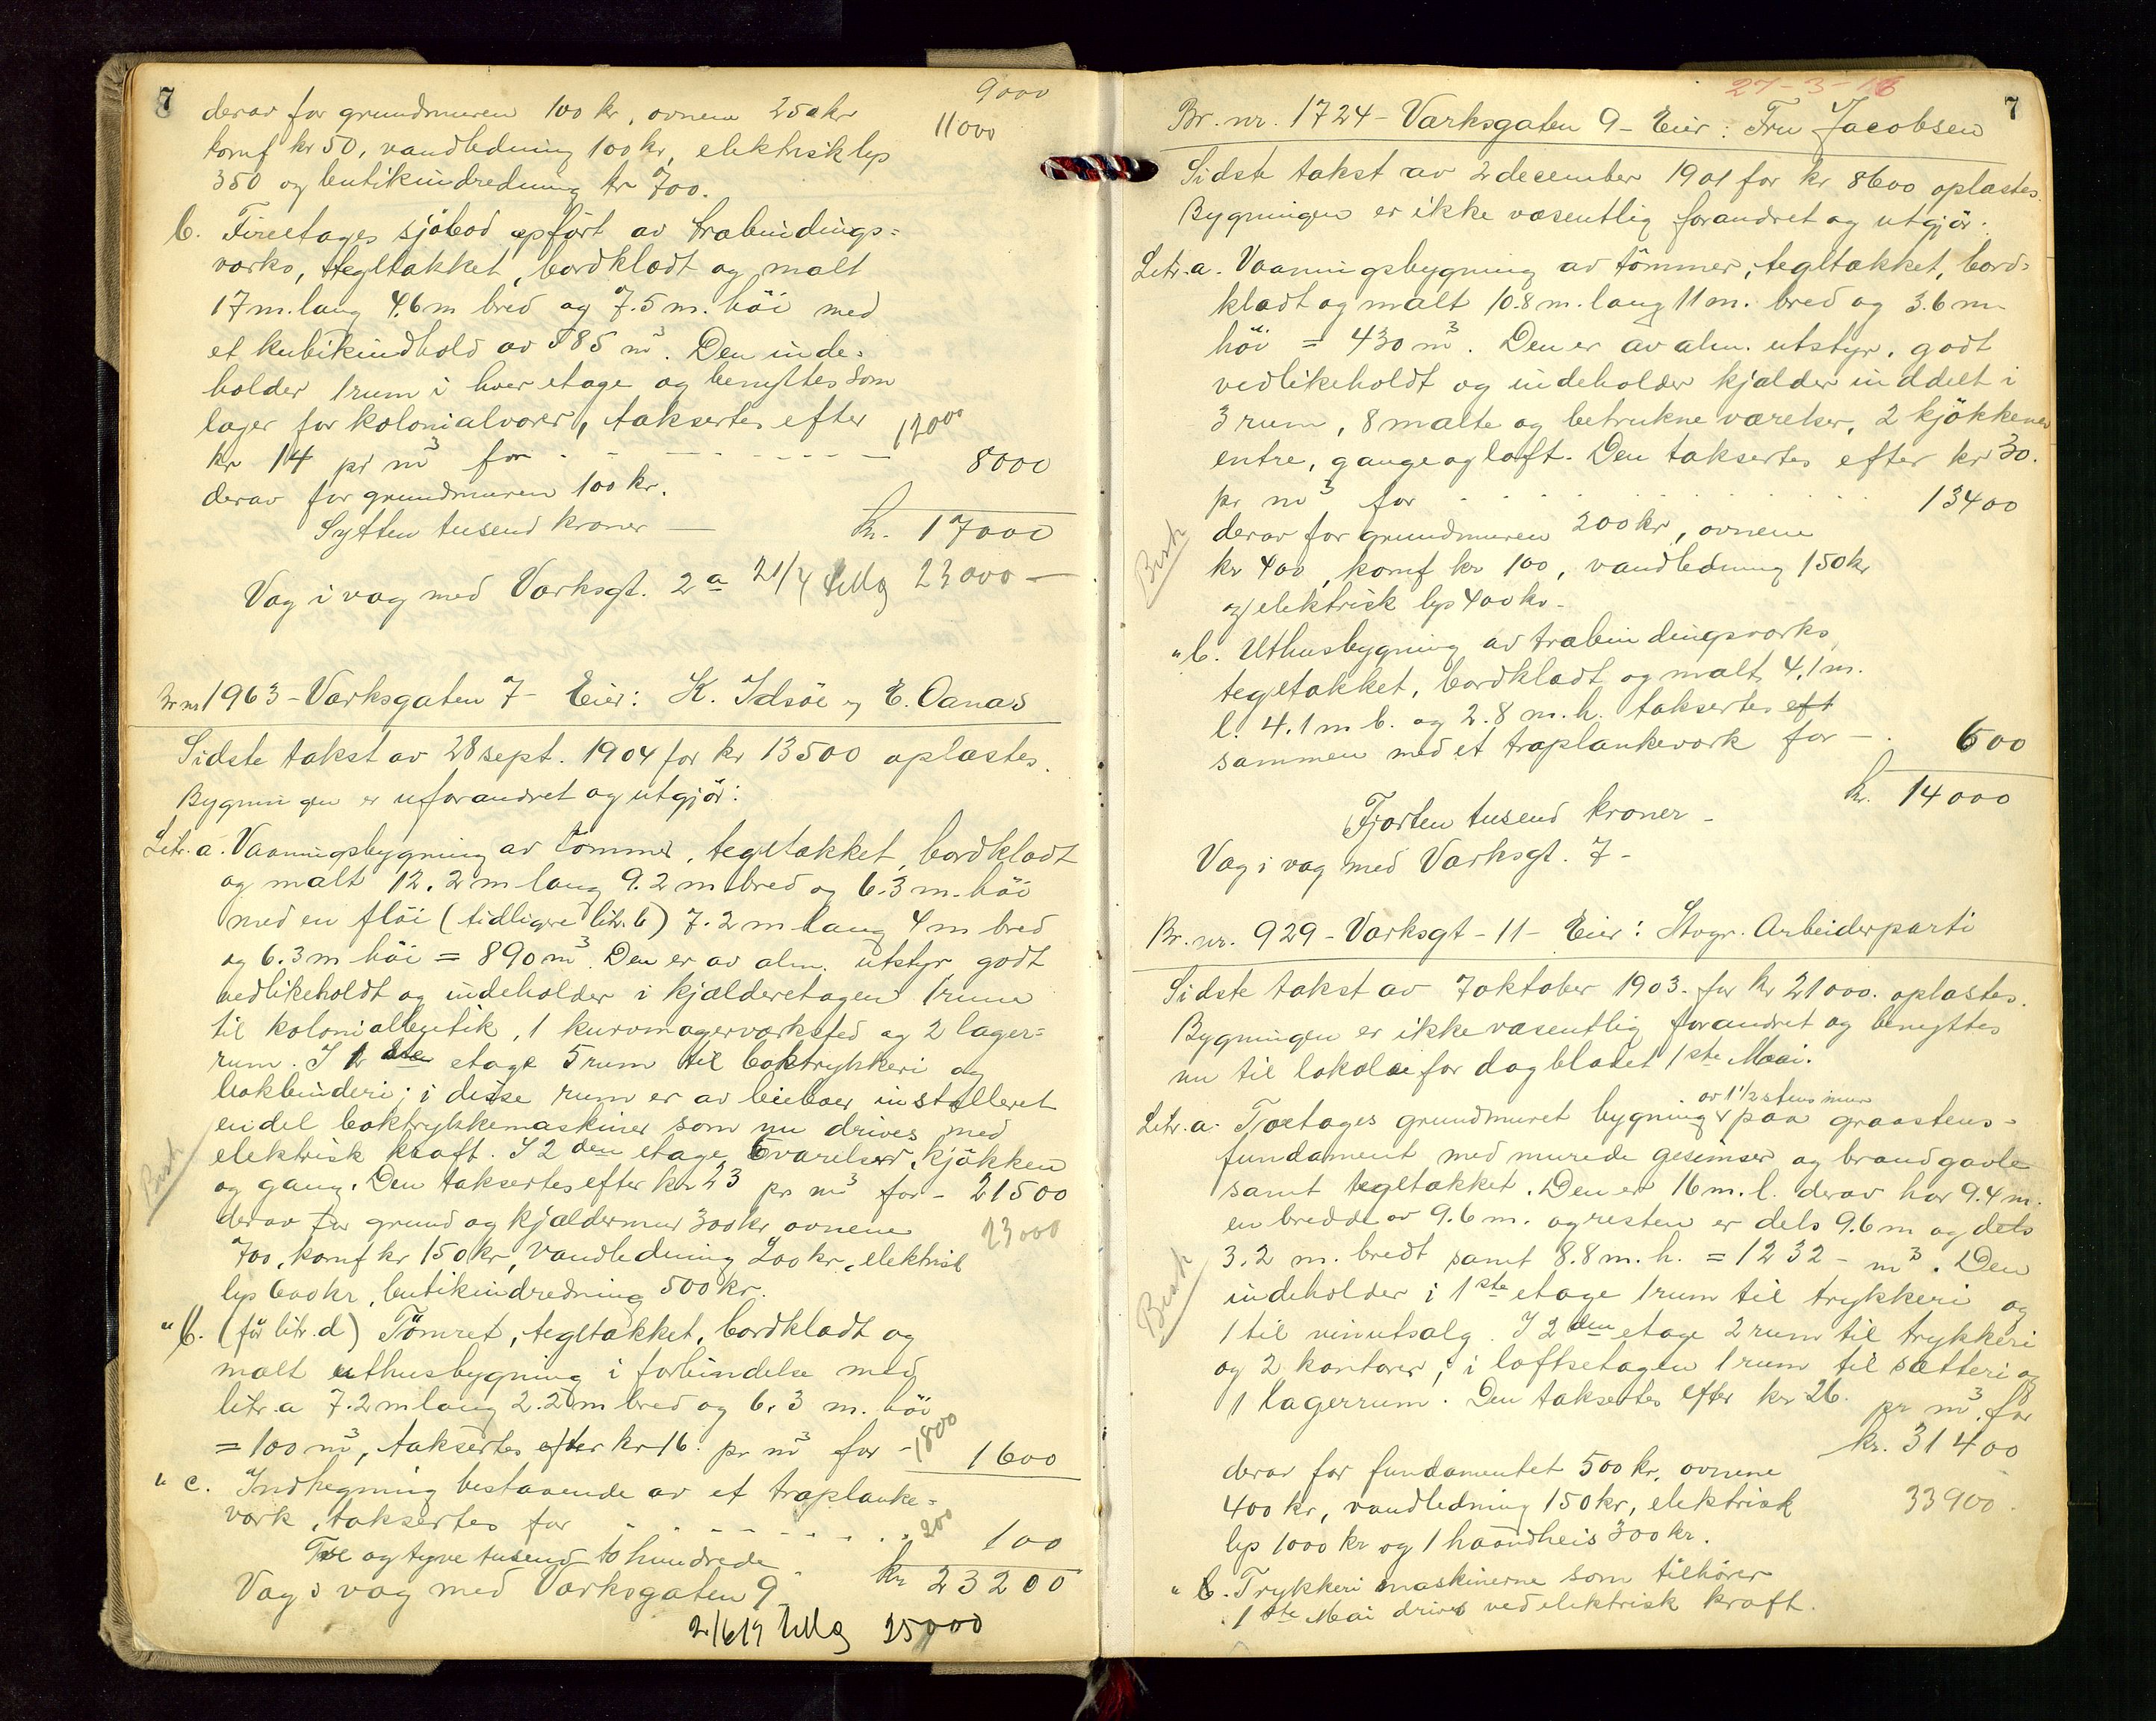 7
9000
derav for grundmuren 100 kr, ovnene 250 kr
11000
komf kr 50, vandledning 100 kr, elektrisk lys
350 og butikindredning kr 700.
b. Fireetages sjöbod opfört av trabindings=
varks, tegltakket, bordkladt og malt
17 m. lang 4.6 m bred og 7.5 m. höi med
et kubikindhold av 585 m³. Den inde=
holder 1 rum i hver etage og benyttes som
lager for kolonialvarer, taksertes efter
12000
kr 14 pr m³ for - - - - - - - - 8000
derav for grundmuren 100 kr.
Sytten tusend kroner — kr. 17000
Vag i vag med Varksgt. 2a 21/4 tillg 23000 —
Br nr 1963 - Varksgaten 7 - Eier: K. Idsöe og E. Oanas
Sidste takst av 28 sept. 1904 for kr 13500 oplastes.
Bygningen er uforandret og utgjör:
Litr. a. Vaaningsbygning av tömmer, tegltakket, bordkladt
og malt 12.2 m lang 9.2 m bred og 6.3 m. höi
med en flöi (tidligere litr. b) 7.2 m lang 4 m bred
og 6.3 m höi = 890 m³. Den er av alm. utstyr, godt
vedlikeholdt og indeholder i kjælderetagen 1 rum
til kolonialbutik, 1 kurvmagerværksted og 2 lager=
rum. I 1 ste etage 5 rum til boktrykkeri og
bokbinderi; i disse rum er av leieboer installeret
endel boktrykkemaskiner som nu drives med
elektrisk kraft. I 2 den etage 6 varelser, kjökken
og gang. Den taksertes efter kr 23 pr m³ for - 21500
Besk
derav for grund og kjældermur 300 kr, ovnene
23000
700, komf kr 150 kr, vandledning 200 kr, elektrisk
lys 600 kr, butikindredning 500 kr.
" b. (för litr. d) Tömret, tegltakket, bordkladt og
malt uthusbygning i forbindelse med
litr. a 7.2 m lang 2.2 m bred og 6.3 m. höi
1800
= 100 m³, taksertes efter kr 16. pr m³ for - 1600
" c. Indhegning bestaaende av et traplanke=
200
vark, taksertes for - - - - - - - 100
Tre og tyve tusend to hundrede - kr 23200
Vag i vag med Varksgaten 9.
2/6 19 tillg 25000
27-3-16
7
Br. nr. 1724 - Varksgaten 9 - Eier: Fru Jacobsen
Sidste takst av 2 december 1901 for kr 8600 oplastes.
Bygningen er ikke vasentlig forandret og utgjör.
Litr. a. Vaaningsbygning av tömmer, tegltakket, bord=
kladt og malt 10.8 m. lang 11 m. bred og 3.6 m
höi = 430 m³. Den er av alm. utstyr, godt
vedlikeholdt og indeholder kjælder inddelt i
3 rum, 8 malte og betrukne værelser, 2 kjökkener
entre, gange og loft. Den taksertes efter kr 30.
pr m³ for . . . . . . . . . 13400
Besk
derav for grundmuren 200 kr, ovnene
kr 400, komf kr 100, vandledning 150 kr
og elektrisk lys 400 kr.
" b. Uthusbygning av trabindingsvarks
tegltakket, bordkladt og malt, 4,1 m.
l. 4.1 m b. og 2.8 m. h. taksertes eft
sammen med et traplankevark for - . 600
kr. 14000
Fjorten tusend kroner -
Vag i vag med Varksgt. 7 -
Br. nr. 929 - Varksgt - 11 - Eier: Stvgr. Arbeiderparti
Sidste takst av 7 oktober 1903. for kr 21000. oplastes.
Bygningen er ikke vasentlig forandret og benyttes
nu til lokale for dagbladet 1ste Mai.
av 1 1/2 stens mur
Litr. a. Toetages grundmuret bygning paa graastens=
fundament med murede gesimser og brandgavle
samt tegltakket. Den er 16 m. l. derav har 9.4 m.
en bredde av 9.6 m. og resten er dels 9.6 m og dels
3.2 m. bredt samt 8.8 m. h. = 1232 - m³. Den
Besk
indeholder i 1ste etage 1 rum til trykkeri og
1 til vinutsalg. I 2 den etage 2 rum til trykkeri
og 2 kontorer, i loftsetagen 1 rum til sætteri og
1 lagerrum. Den taksertes efter kr 26. pr m³. for
kr. 31400
derav for fundamentet 500 kr, ovnene
400 kr, vandledning 150 kr, elektrisk
33900.
lys 1000 kr og 1 haandheis 300 kr.
" b. Trykkerimaskinerne som tilhörer
1ste Mai drives ved elektrisk kraft.